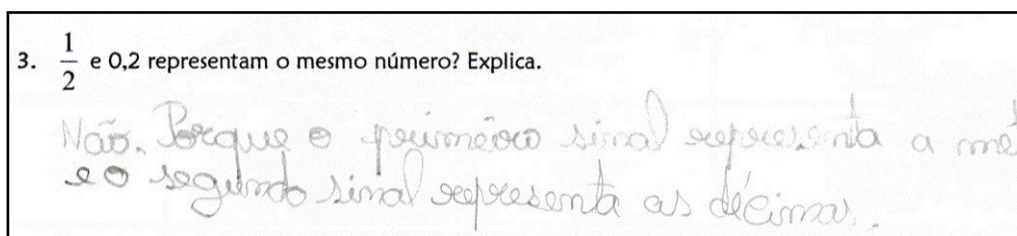 3. 1/2 e 0,2 representam o mesmo número? Explica.
Não. Porque o primeiro sinal representa a me
e o segundo sinal representa as décimas.